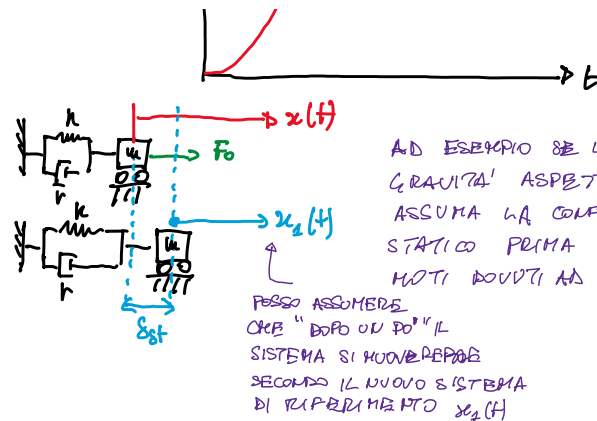 t
x(t)
k
m
F₀
r
AD ESEMPIO SE L
GRAVITA' ASPET
ASSUMA LA CONF
STATICO PRIMA
MOTI DOVUTI AD
k
m
x₁(t)
r
δst
POSSO ASSUMERE
CHE "DOPO UN PO'" IL
SISTEMA SI MUOVEREBBE
SECONDO IL NUOVO SISTEMA
DI RIFERIMENTO x₁(t)